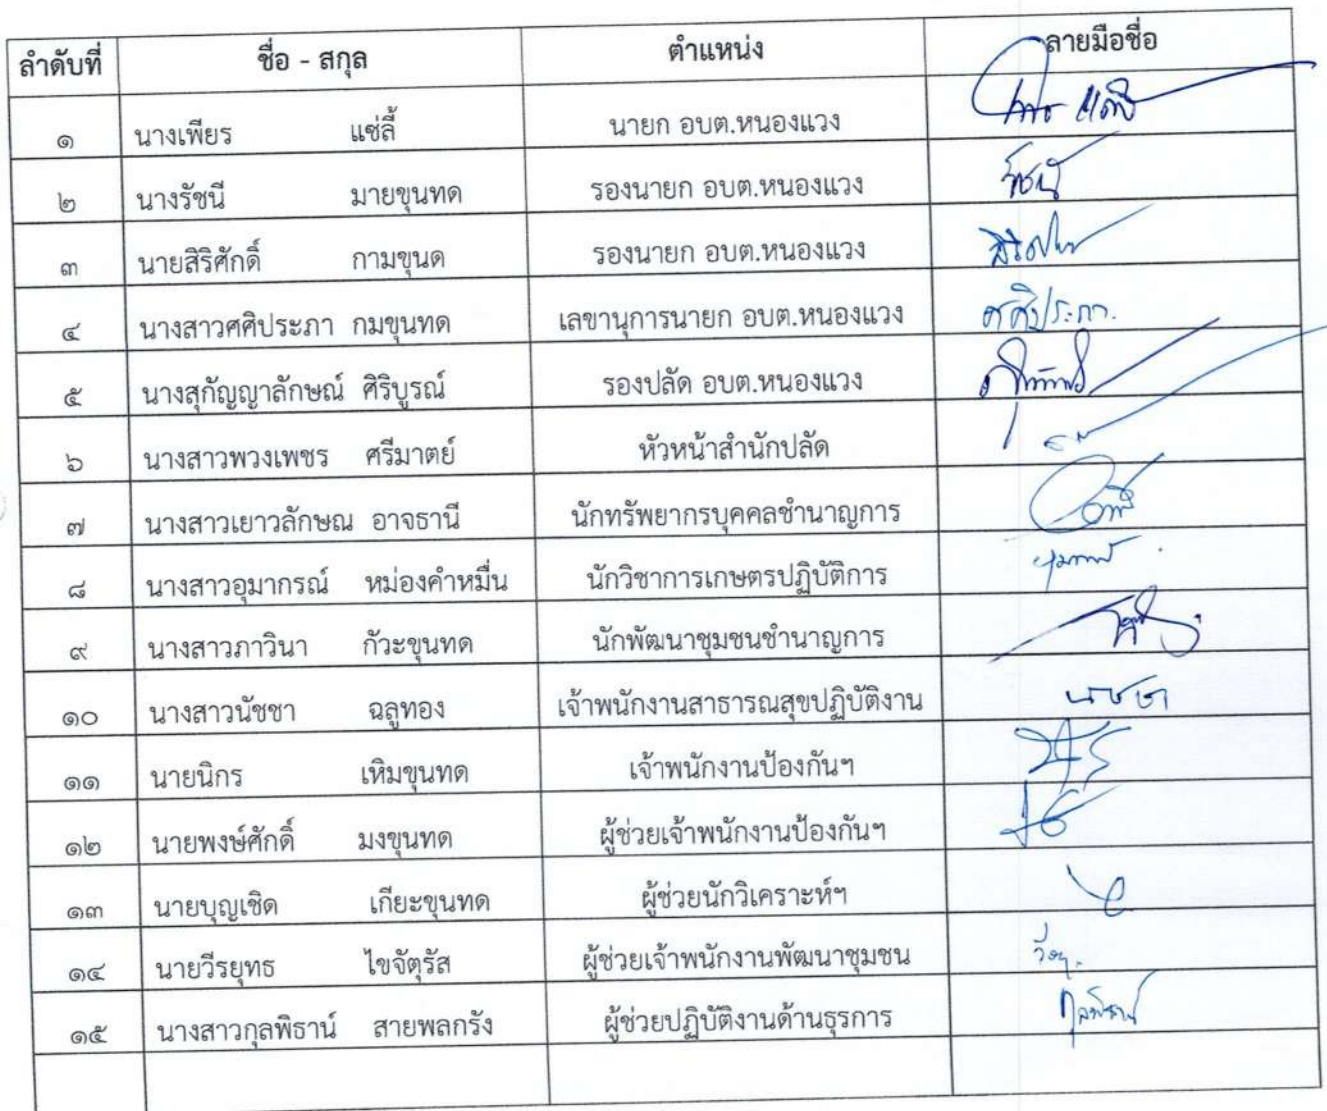 ลำดับที่ ชื่อ - สกุล ตำแหน่ง ลายมือชื่อ
๑ นางเพียร แซ่ลี้ นายก อบต.หนองแวง
๒ นางรัชนี มายขุนทด รองนายก อบต.หนองแวง รัชนี
๓ นายสิริศักดิ์ กามขุนด รองนายก อบต.หนองแวง
๔ นางสาวศศิประภา กมขุนทด เลขานุการนายก อบต.หนองแวง ศศิประภา.
๕ นางสุกัญญาลักษณ์ ศิริบูรณ์ รองปลัด อบต.หนองแวง
๖ นางสาวพวงเพชร ศรีมาตย์ หัวหน้าสำนักปลัด
๗ นางสาวเยาวลักษณ อาจธานี นักทรัพยากรบุคคลชำนาญการ
๘ นางสาวอุมากรณ์ หม่องคำหมื่น นักวิชาการเกษตรปฏิบัติการ
๙ นางสาวภาวินา กัวะขุนทด นักพัฒนาชุมชนชำนาญการ
๑๐ นางสาวนัชชา ฉลูทอง เจ้าพนักงานสาธารณสุขปฏิบัติงาน นัชชา
๑๑ นายนิกร เหิมขุนทด เจ้าพนักงานป้องกันฯ
๑๒ นายพงษ์ศักดิ์ มงขุนทด ผู้ช่วยเจ้าพนักงานป้องกันฯ
๑๓ นายบุญเชิด เกียะขุนทด ผู้ช่วยนักวิเคราะห์ฯ
๑๔ นายวีรยุทธ ไขจัตุรัส ผู้ช่วยเจ้าพนักงานพัฒนาชุมชน
๑๕ นางสาวกุลพิธาน์ สายพลกรัง ผู้ช่วยปฏิบัติงานด้านธุรการ กุลพิธาน์